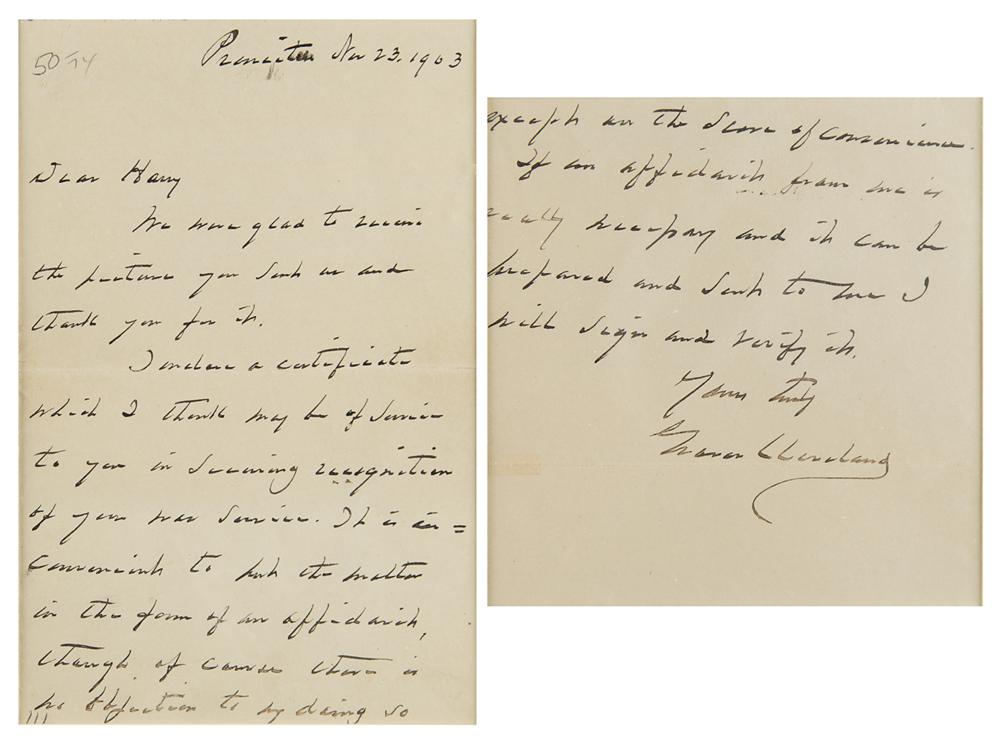 50
Princeton Nov 23. 1903
Dear Harry
We were glad to receive
the picture you sent us and
thank you for it.
I enclose a certificate
which I think may be of service
to you in securing recognition
of your war service. It is in=
convenient to put the matter
in the form of an affidavit,
though of course there is
no objection to my doing so
except on the score of convenience.
If an affidavit from me is
really necessary and it can be
prepared and sent to me I
will sign and verify it.
Yours truly
Grover Cleveland